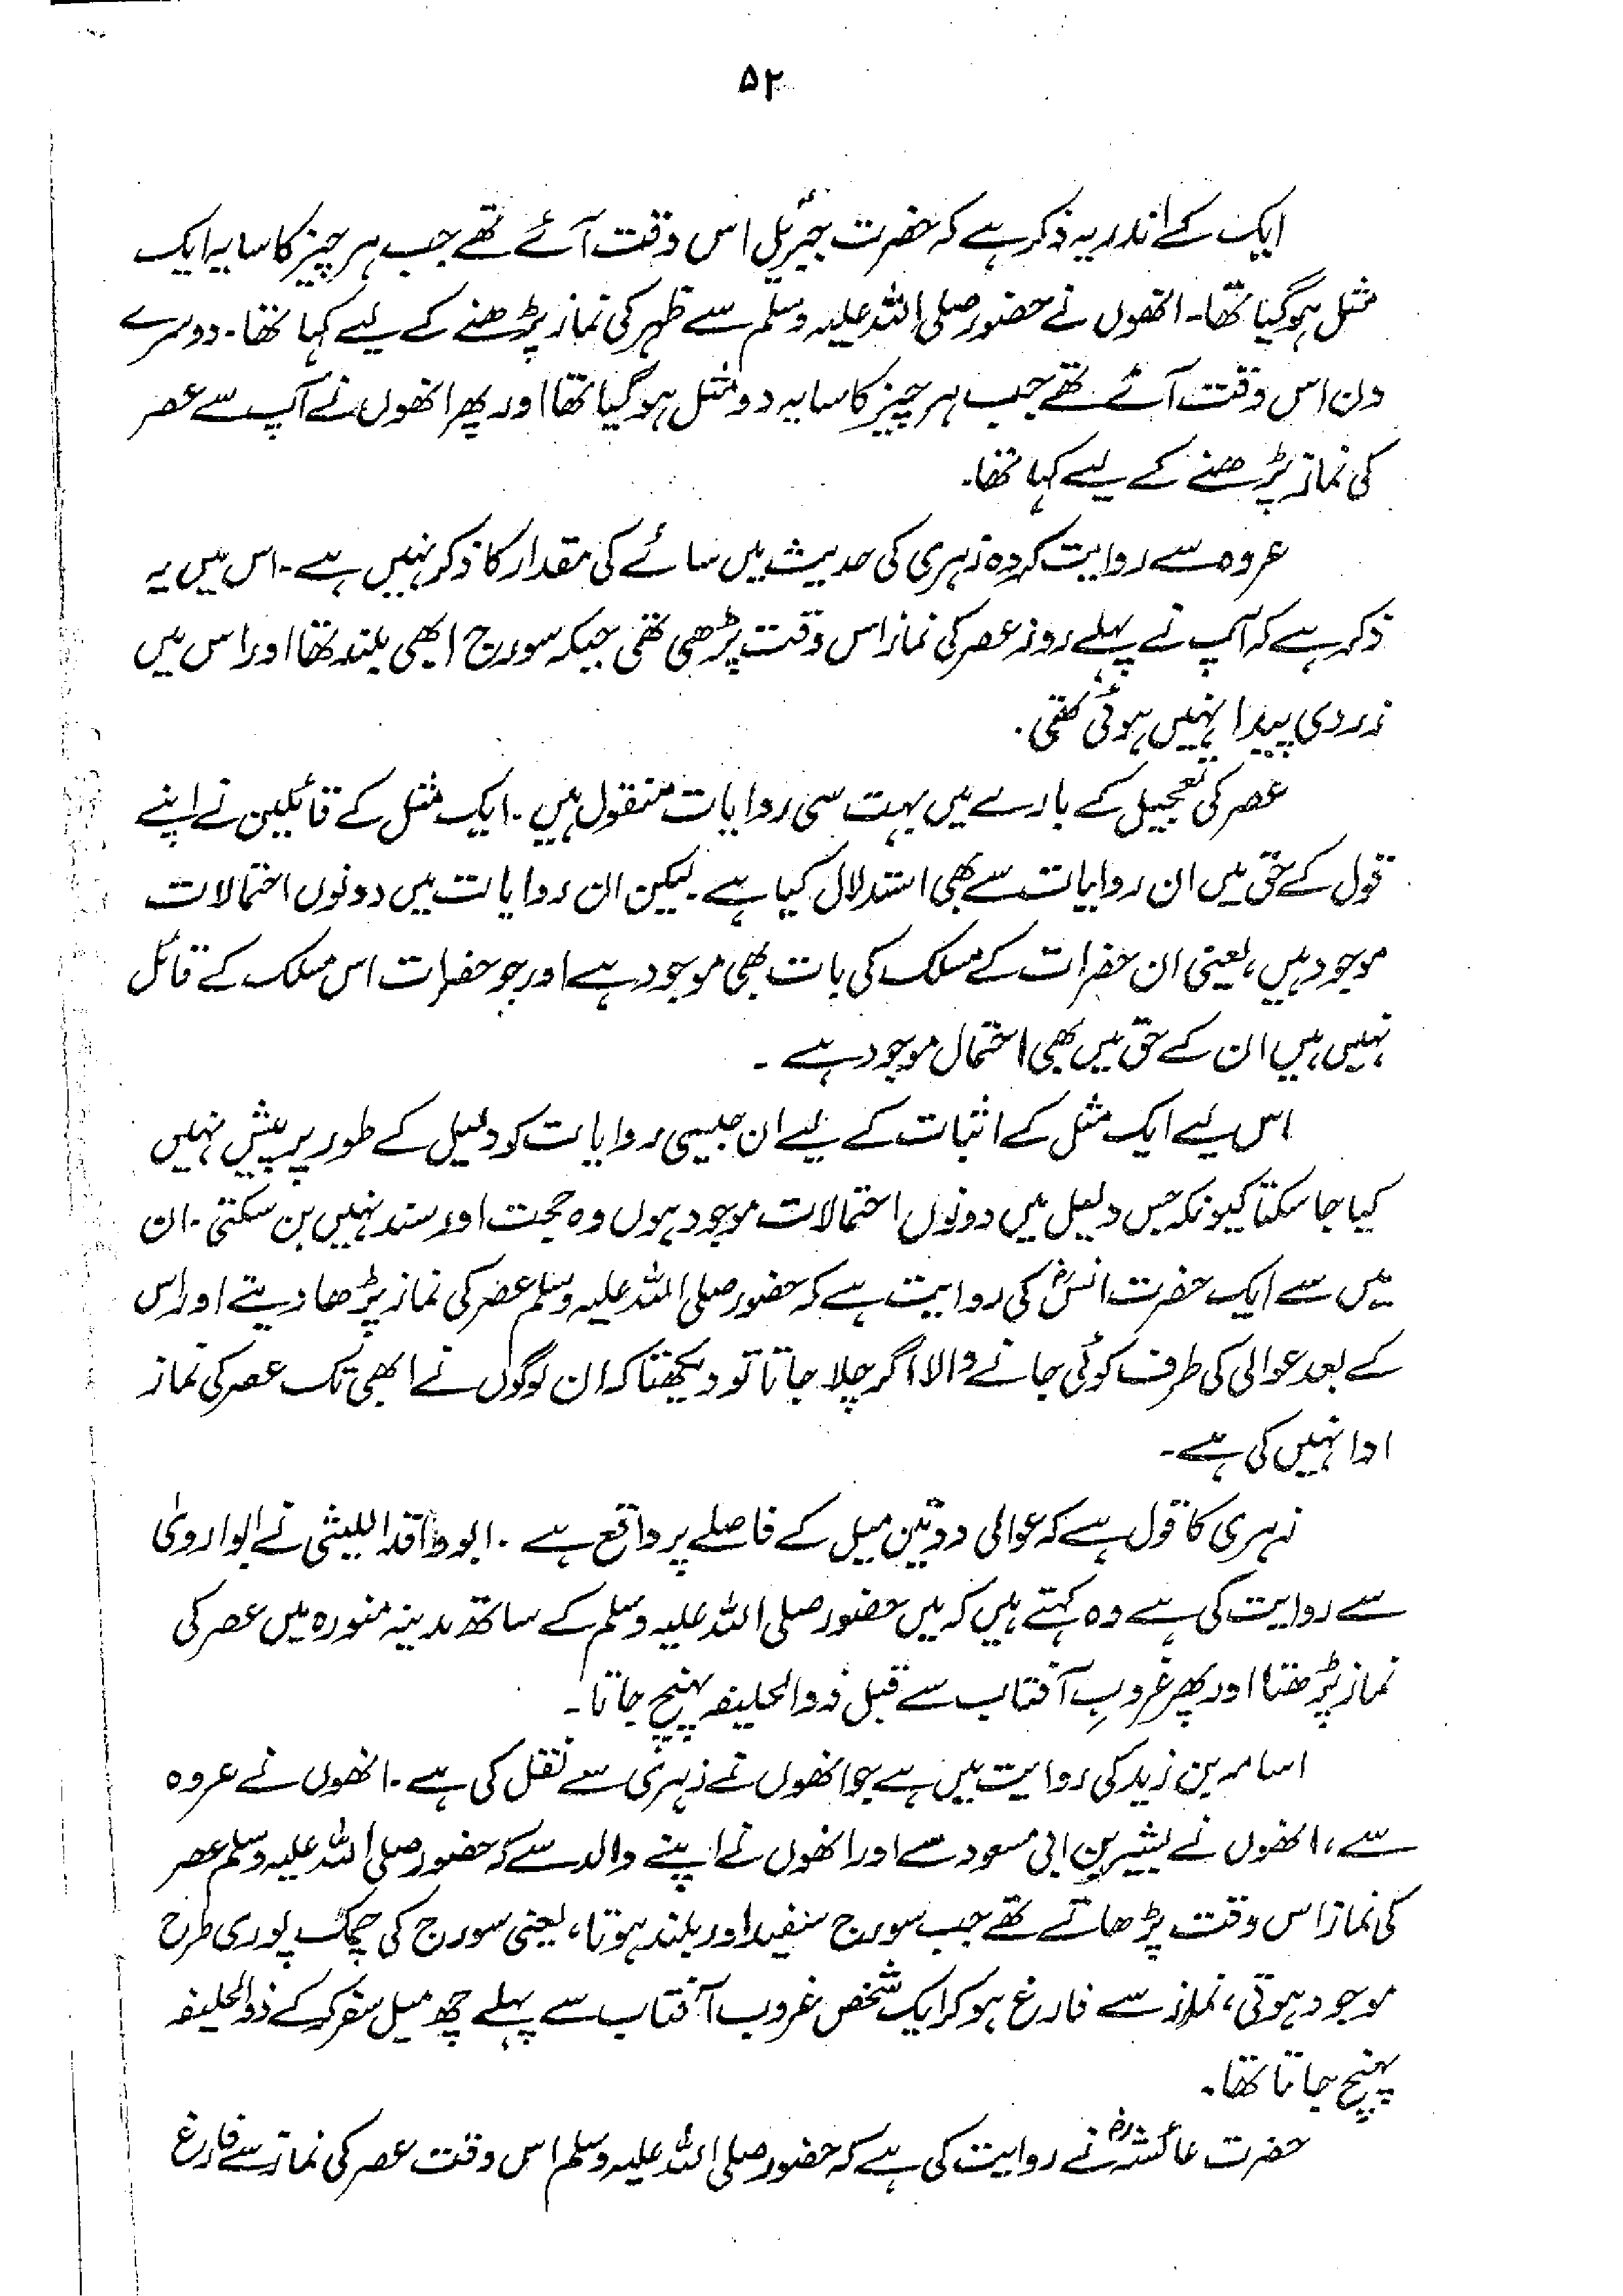 ۵۲
ایک کے اندر یہ ذکر ہے کہ حضرت جبریلؑ اس وقت آئے تھے جب ہر چیز کا سایہ ایک
مثل ہوگیا تھا۔ انھوں نے حضور صلی اللہ علیہ وسلم سے ظہر کی نماز پڑھنے کے لیے کہا تھا۔ دوسرے
دن اس وقت آئے تھے جب ہر چیز کا سایہ دو مثل ہوگیا تھا اور پھر انھوں نے آپ سے عصر
کی نماز پڑھنے کے لیے کہا تھا۔
عروہ سے روایت کردہ زہری کی حدیث میں سائے کی مقدار کا ذکر نہیں ہے۔ اس میں یہ
ذکر ہے کہ آپ نے پہلے روز عصر کی نماز اس وقت پڑھی تھی جبکہ سورج ابھی بلند تھا اور اس میں
زردی پیدا نہیں ہوئی تھی۔
عصر کی تعجیل کے بارے میں بہت سی روایات منقول ہیں۔ ایک مثل کے قائلین نے اپنے
قول کے حق میں ان روایات سے بھی استدلال کیا ہے۔ لیکن ان روایات میں دونوں احتمالات
موجود ہیں، یعنی ان حضرات کے مسلک کی بات بھی موجود ہے اور جو حضرات اس مسلک کے قائل
نہیں ہیں ان کے حق میں بھی احتمال موجود ہے ۔
اس لیے ایک مثل کے اثبات کے لیے ان جیسی روایات کو دلیل کے طور پر پیش نہیں
کیا جا سکتا کیونکہ جس دلیل میں دونوں احتمالات موجود ہوں وہ حجت اور سند نہیں بن سکتی۔ ان
میں سے ایک حضرت انسؓ کی روایت ہے کہ حضور صلی اللہ علیہ وسلم عصر کی نماز پڑھا دیتے اور اس
کے بعد عوالی کی طرف کوئی جانے والا اگر چلا جاتا تو دیکھتا کہ ان لوگوں نے ابھی تک عصر کی نماز
ادا نہیں کی ہے۔
زہری کا قول ہے کہ عوالی دو تین میل کے فاصلے پر واقع ہے ۔ ابو واقد اللیثی نے ابو اروی
سے روایت کی ہے وہ کہتے ہیں کہ میں حضور صلی اللہ علیہ وسلم کے ساتھ مدینہ منورہ میں عصر کی
نماز پڑھتا اور پھر غروبِ آفتاب سے قبل ذوالحلیفہ پہنچ جاتا۔
اسامہ بن زید کی روایت میں ہے جو انھوں نے زہری سے نقل کی ہے۔ انھوں نے عروہ
سے، انھوں نے بشیر بن ابی مسعود سے اور انھوں نے اپنے والد سے کہ حضور صلی اللہ علیہ وسلم عصر
کی نماز اس وقت پڑھاتے تھے جب سورج سفید اور بلند ہوتا، یعنی سورج کی چمک پوری طرح
موجود ہوتی، نماز سے فارغ ہوکر ایک شخص غروب آفتاب سے پہلے چھ میل سفر کرکے ذوالحلیفہ
پہنچ جاتا تھا۔
حضرت عائشہؓ نے روایت کی ہے کہ حضور صلی اللہ علیہ وسلم اس وقت عصر کی نماز سے فارغ